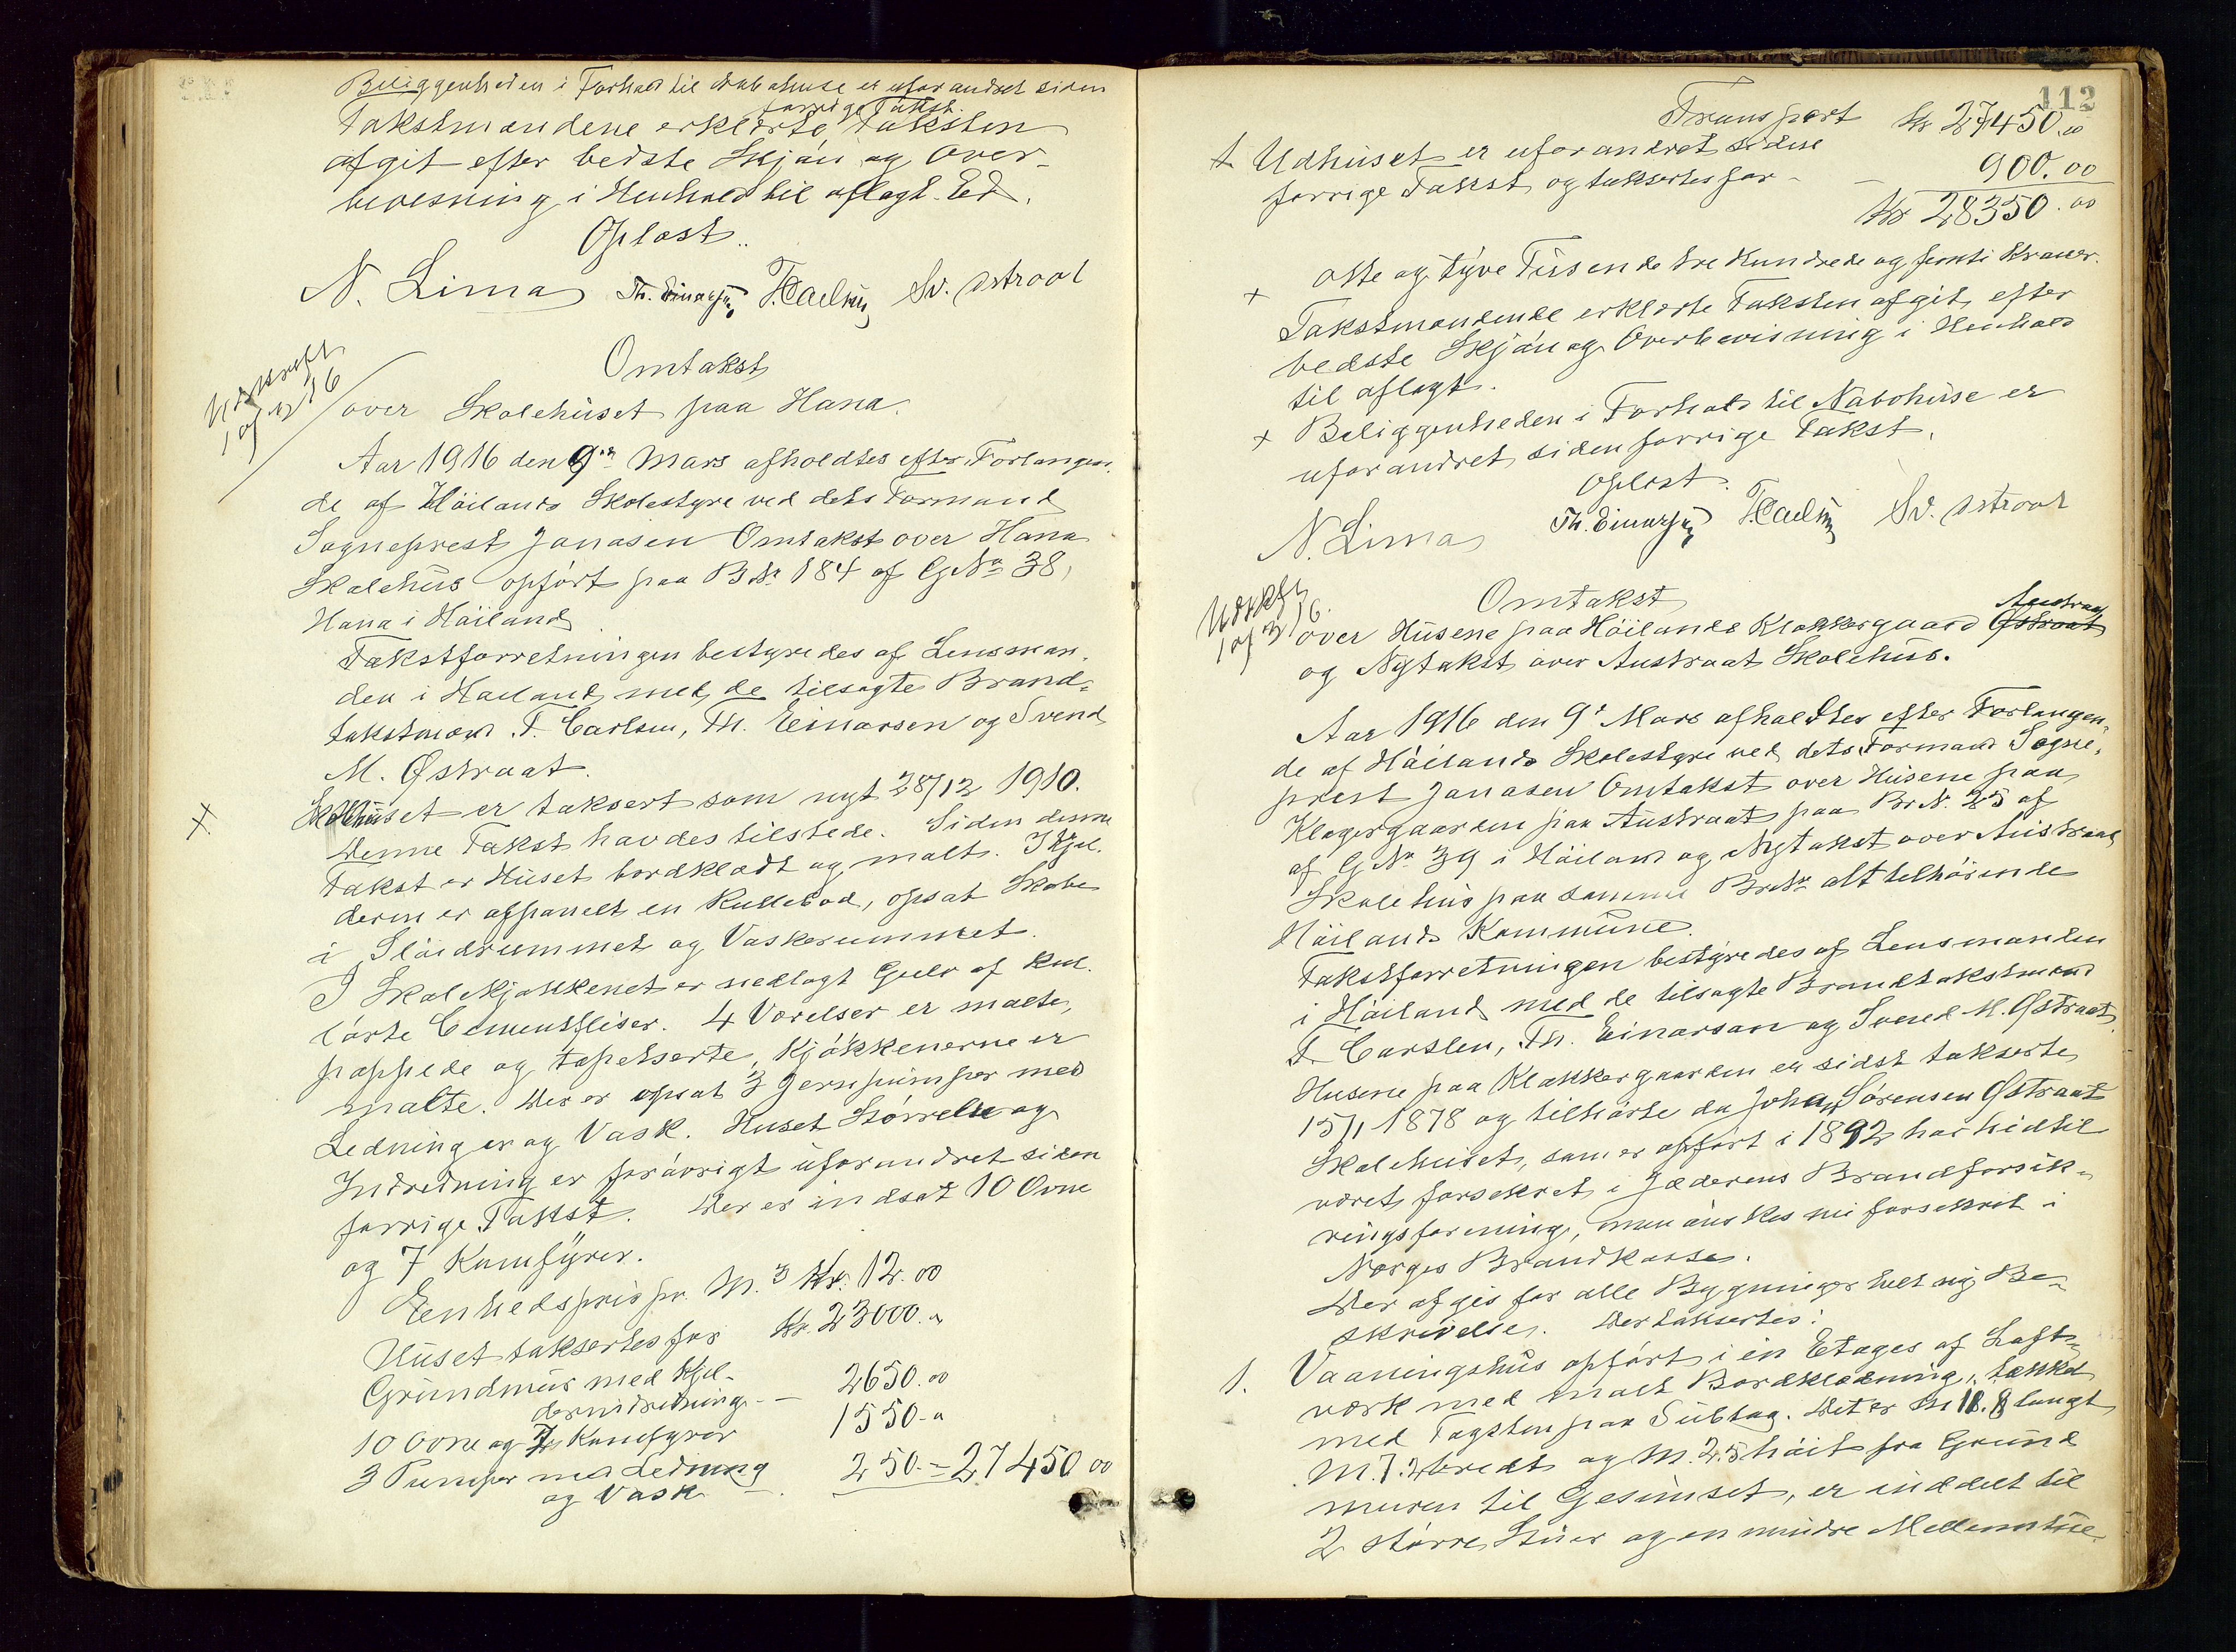 Beliggenheden i Forhold til Nabohuse er uforandret siden
forrige Takst.
Takstmændene erklærte Taksten
afgit efter bedste Skjøn og Over-
bevisning i Henhold til aflagt Ed.
Oplæst..
N. Lima Th. Einarsen T. Carlsen Sv. Østraat
Udskrift
1 af 3/16
Omtakst
over Skolehuset paa Hana.
Aar 1916 den 9de Mars afholdtes efter Forlangen-
de af Höilands Skolestyre ved dets Formand
Sogneprest Jonasen Omtakst over Hana
Skolehus opført paa B.Nr 184 af G.No 38,
Hana i Höiland
Takstforretningen bestyredes af Lensman-
den i Høiland med de tilsagte Brand-
takstmænd T. Carlsen, Th. Einarsen og Svend
M. Østraat.
+ Skolehuset er taksert som nyt 28/12 1910.
Denne Takst havdes tilstede. Siden denne
Takst er Huset bordklædt og malt. I Kjel-
deren er afpanelt en Kullebod, opsat Skabe
i Sløidrummet og Vaskerummet.
I Skolekjøkkenet er nedlagt Gulv af kul-
lørte Cementfliser. 4 Værelser er malte,
pappede og tapetserte, Kjøkkenerne er
malte. Der er opsat 3 Jernpumper med
Ledninger og Vask. Huset Størrelse og
Indredning er forøvrigt uforandret siden
forrige Takst. Der er indsat 10 Ovne
og 7 Komfyrer.
Eenhedspris pr. M.3 Kr. 12.00
Huset taksertes for Kr. 23000.„
Grundmur med Kjel-
derindredning - 2650.00
10 Ovne og 7 Komfyrer 1550-„
3 Pumper med Ledning
og Vask - 250.- = 27450 00
112
Transport Kr 27450.00
+ Udhuset er uforandret siden
forrige Takst og taksertes for - - 900.00
Kr 28350.00
+ otte og tyve Tusende tre Hundrede og femti Kroner.
Takstmændende erklærte Taksten afgit efter
bedste Skjøn og Overbevisning i Henhold
til aflagt.
+ Beliggenheden i Forhold til Nabohuse er
uforandret siden forrige Takst.
Oplæst.
N. Lima Th. Einarsen T. Carlsen Sv. Østraat
Udskrift
1 af 3/16.
Omtakst
Austraat
over Husene paa Höilands Klokkergaard Østraat
og Nytakst over Austraat Skolehus.
Aar 1916 den 9de Mars afholdtes efter Forlangen-
de af Höilands Skolestyre ved dets Formand Sogne-
prest Jonasen Omtakst over Husene paa
Klogergaarden paa Austraat paa Br.N. 25 af
af G.No 39 i Höiland og Nytakst over Austraat
Skolehus paa samme Br.No alt tilhørende
Höilands Kommune.
Takstforretningen bestyredes af Lensmanden
i Höiland med de tilsagte Brandtakstmænd
T. Carslen, Th. Einarsan og Svend M. Østraat.
Husene paa Klokkergaarden er sidst takserte
15/1 1878 og tilhørte da Johan Sörensen Østraat
Skolehuset, som er opført i 1892 har hidtil
været forsekret i Jæderens Brandforsik-
ringsforening, men ønskes nu forsekret i
Norges Brandkasse.
Der afgis for alle Bygninger helt ny Be-
skrivelse. Der taksertes:
1. Vaaningshus opført i en Etages af Laft-
værk med malt Bordklædning, tækket
med Tagsten paa Sutag. Det er M 18.8 langt
M. 7.2 bredt og M. 2.5 høit fra Grund
muren til Gesimset, er inddelt til
2 større Stuer og en mindre Mellemstue